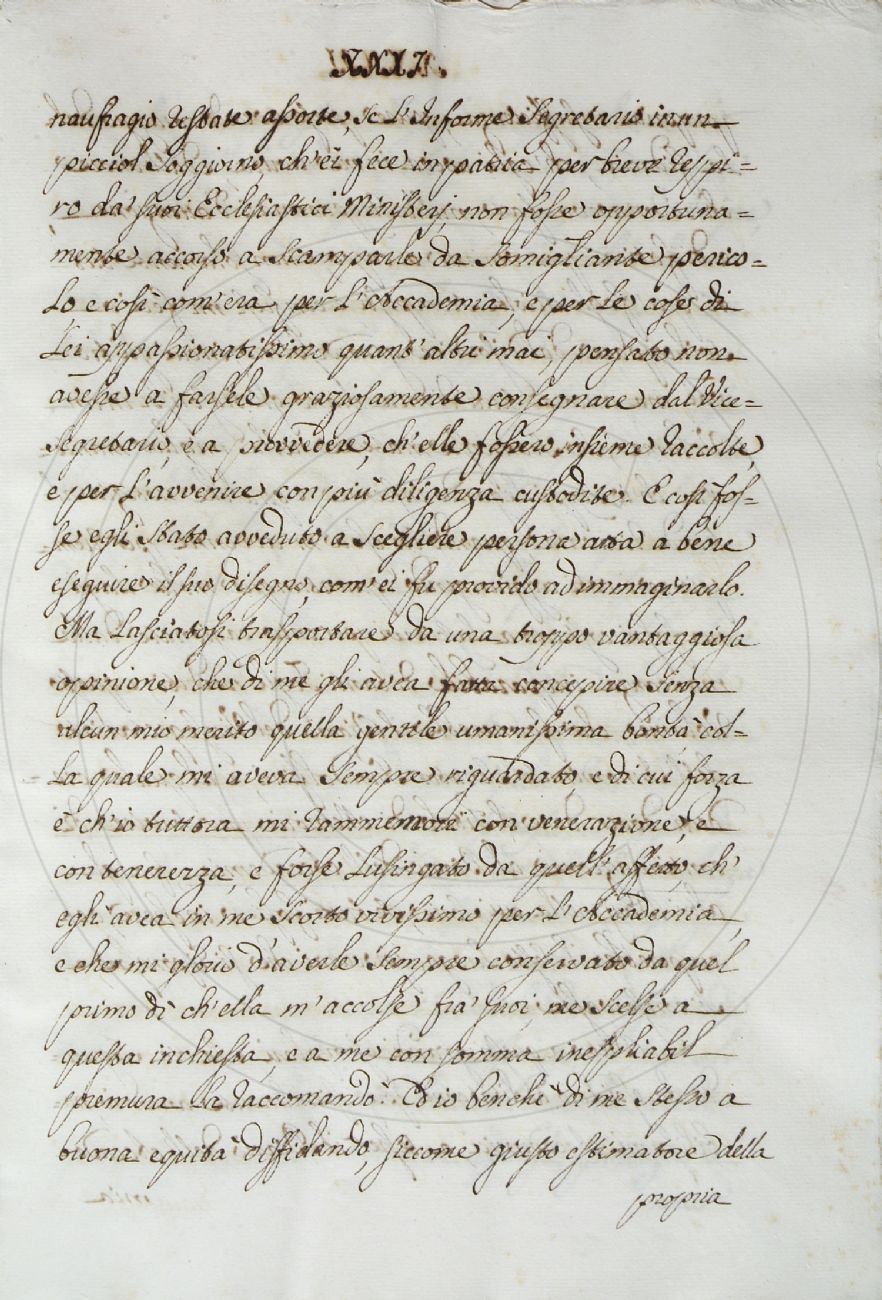 XXXI.
naufragio restate assorte, se l'Informe Segretario in un
picciol soggiorno, ch'ei fece in patria per breve respi=
ro da' suoi Ecclesiastici Ministerj, non fosse opportuna=
mente accorso a scamparle da somigliante perico=
lo e così com'era per l'Accademia, e per le cose di
Lei appassionatissimo quant'altri mai, pensato non
avesse a farsele graziosamente consegnare dal Vice=
segretario, e a provvedere, ch'elle fossero insieme raccolte,
e per l'avvenire con più diligenza custodite. E così fos=
se egli stato avveduto a scegliere persona atta a bene
eseguire il suo disegno, com'ei fu provido ad immaginarlo.
Ma lasciatosi trasportare da una troppo vantaggiosa
opinione, che di me gli avea fatta concepire senza
alcun mio merito quella gentile umanissima bontà, col=
la quale mi aveva sempre riguardato, e di cui forza
è ch'io tuttora mi rammemori con venerazione, e
con tenerezza, e forse lusingato da quell'affetto, ch'
egli avea in me scorto vivissimo per l'Accademia,
e che mi glorio d'averle sempre conservato da quel
primo dì ch'ella m'accolse fra' suoi, me scelse a
questa inchiesta, e a me con somma inesplicabil
premura la raccomandò. Ed io benchè di me stesso a
buona equità diffidando, siccome giusto estimatore della
propria